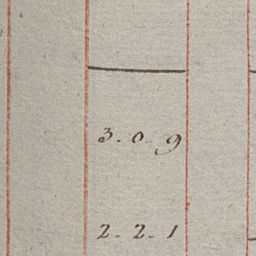 3. 0. 9
2. 2. 1